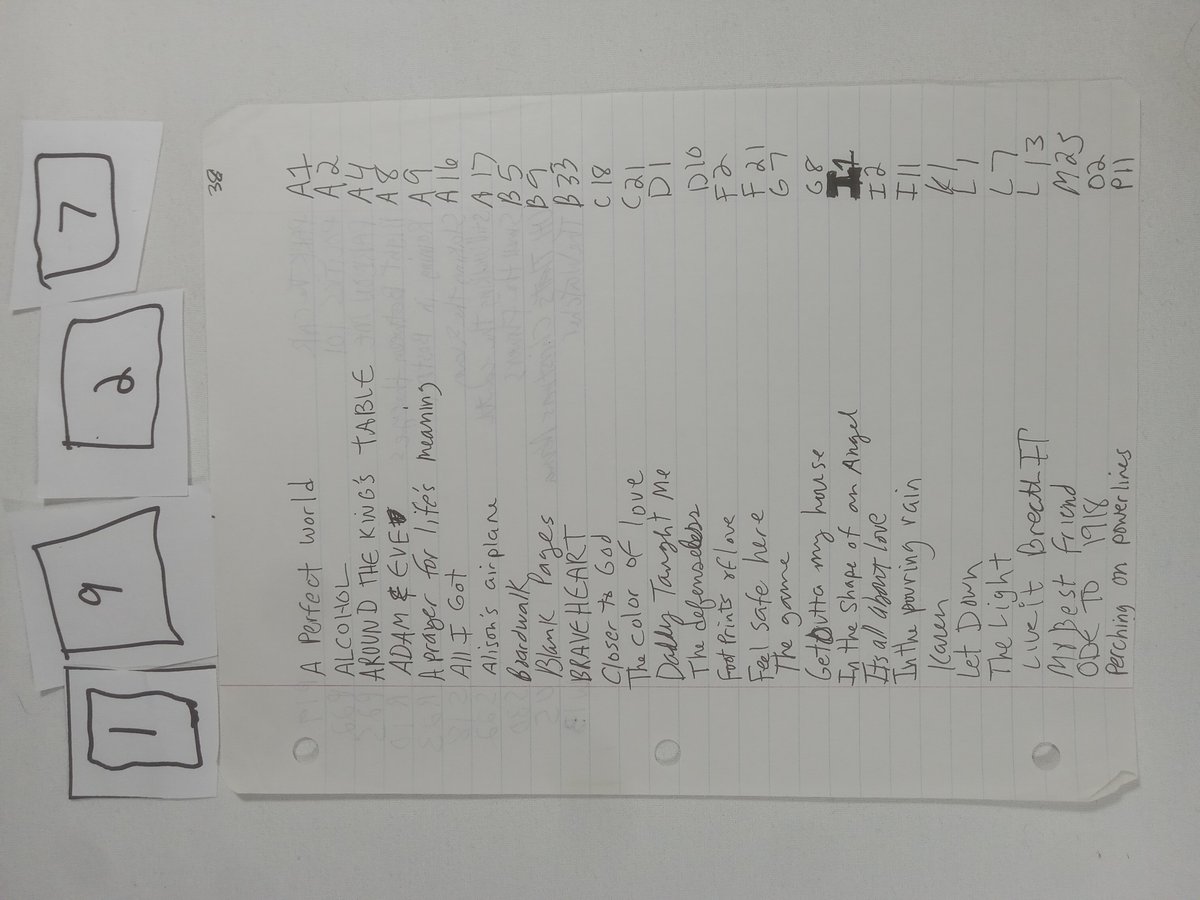 1 9 2 7
38
A Perfect world A1
ALCOHOL A2
AROUND THE KING'S TABLE A4
ADAM & EVE A8
A prayer for life's meaning A9
All I Got A16
Alison's airplane A17
Boardwalk B5
Blank Pages B9
BRAVEHEART B33
Closer to God C18
The color of love C21
Daddy Taught Me D1
The defenseless D10
Foot Prints of love F2
Feel safe here F21
The game G7
Get Outta my house G8
In the Shape of an Angel I1
It's all about love I2
In the pouring rain I11
Karen K1
Let Down L1
The Light L7
Live it Breath IT L13
My Best Friend M25
ODE TO 1918 O2
perching on powerlines P11